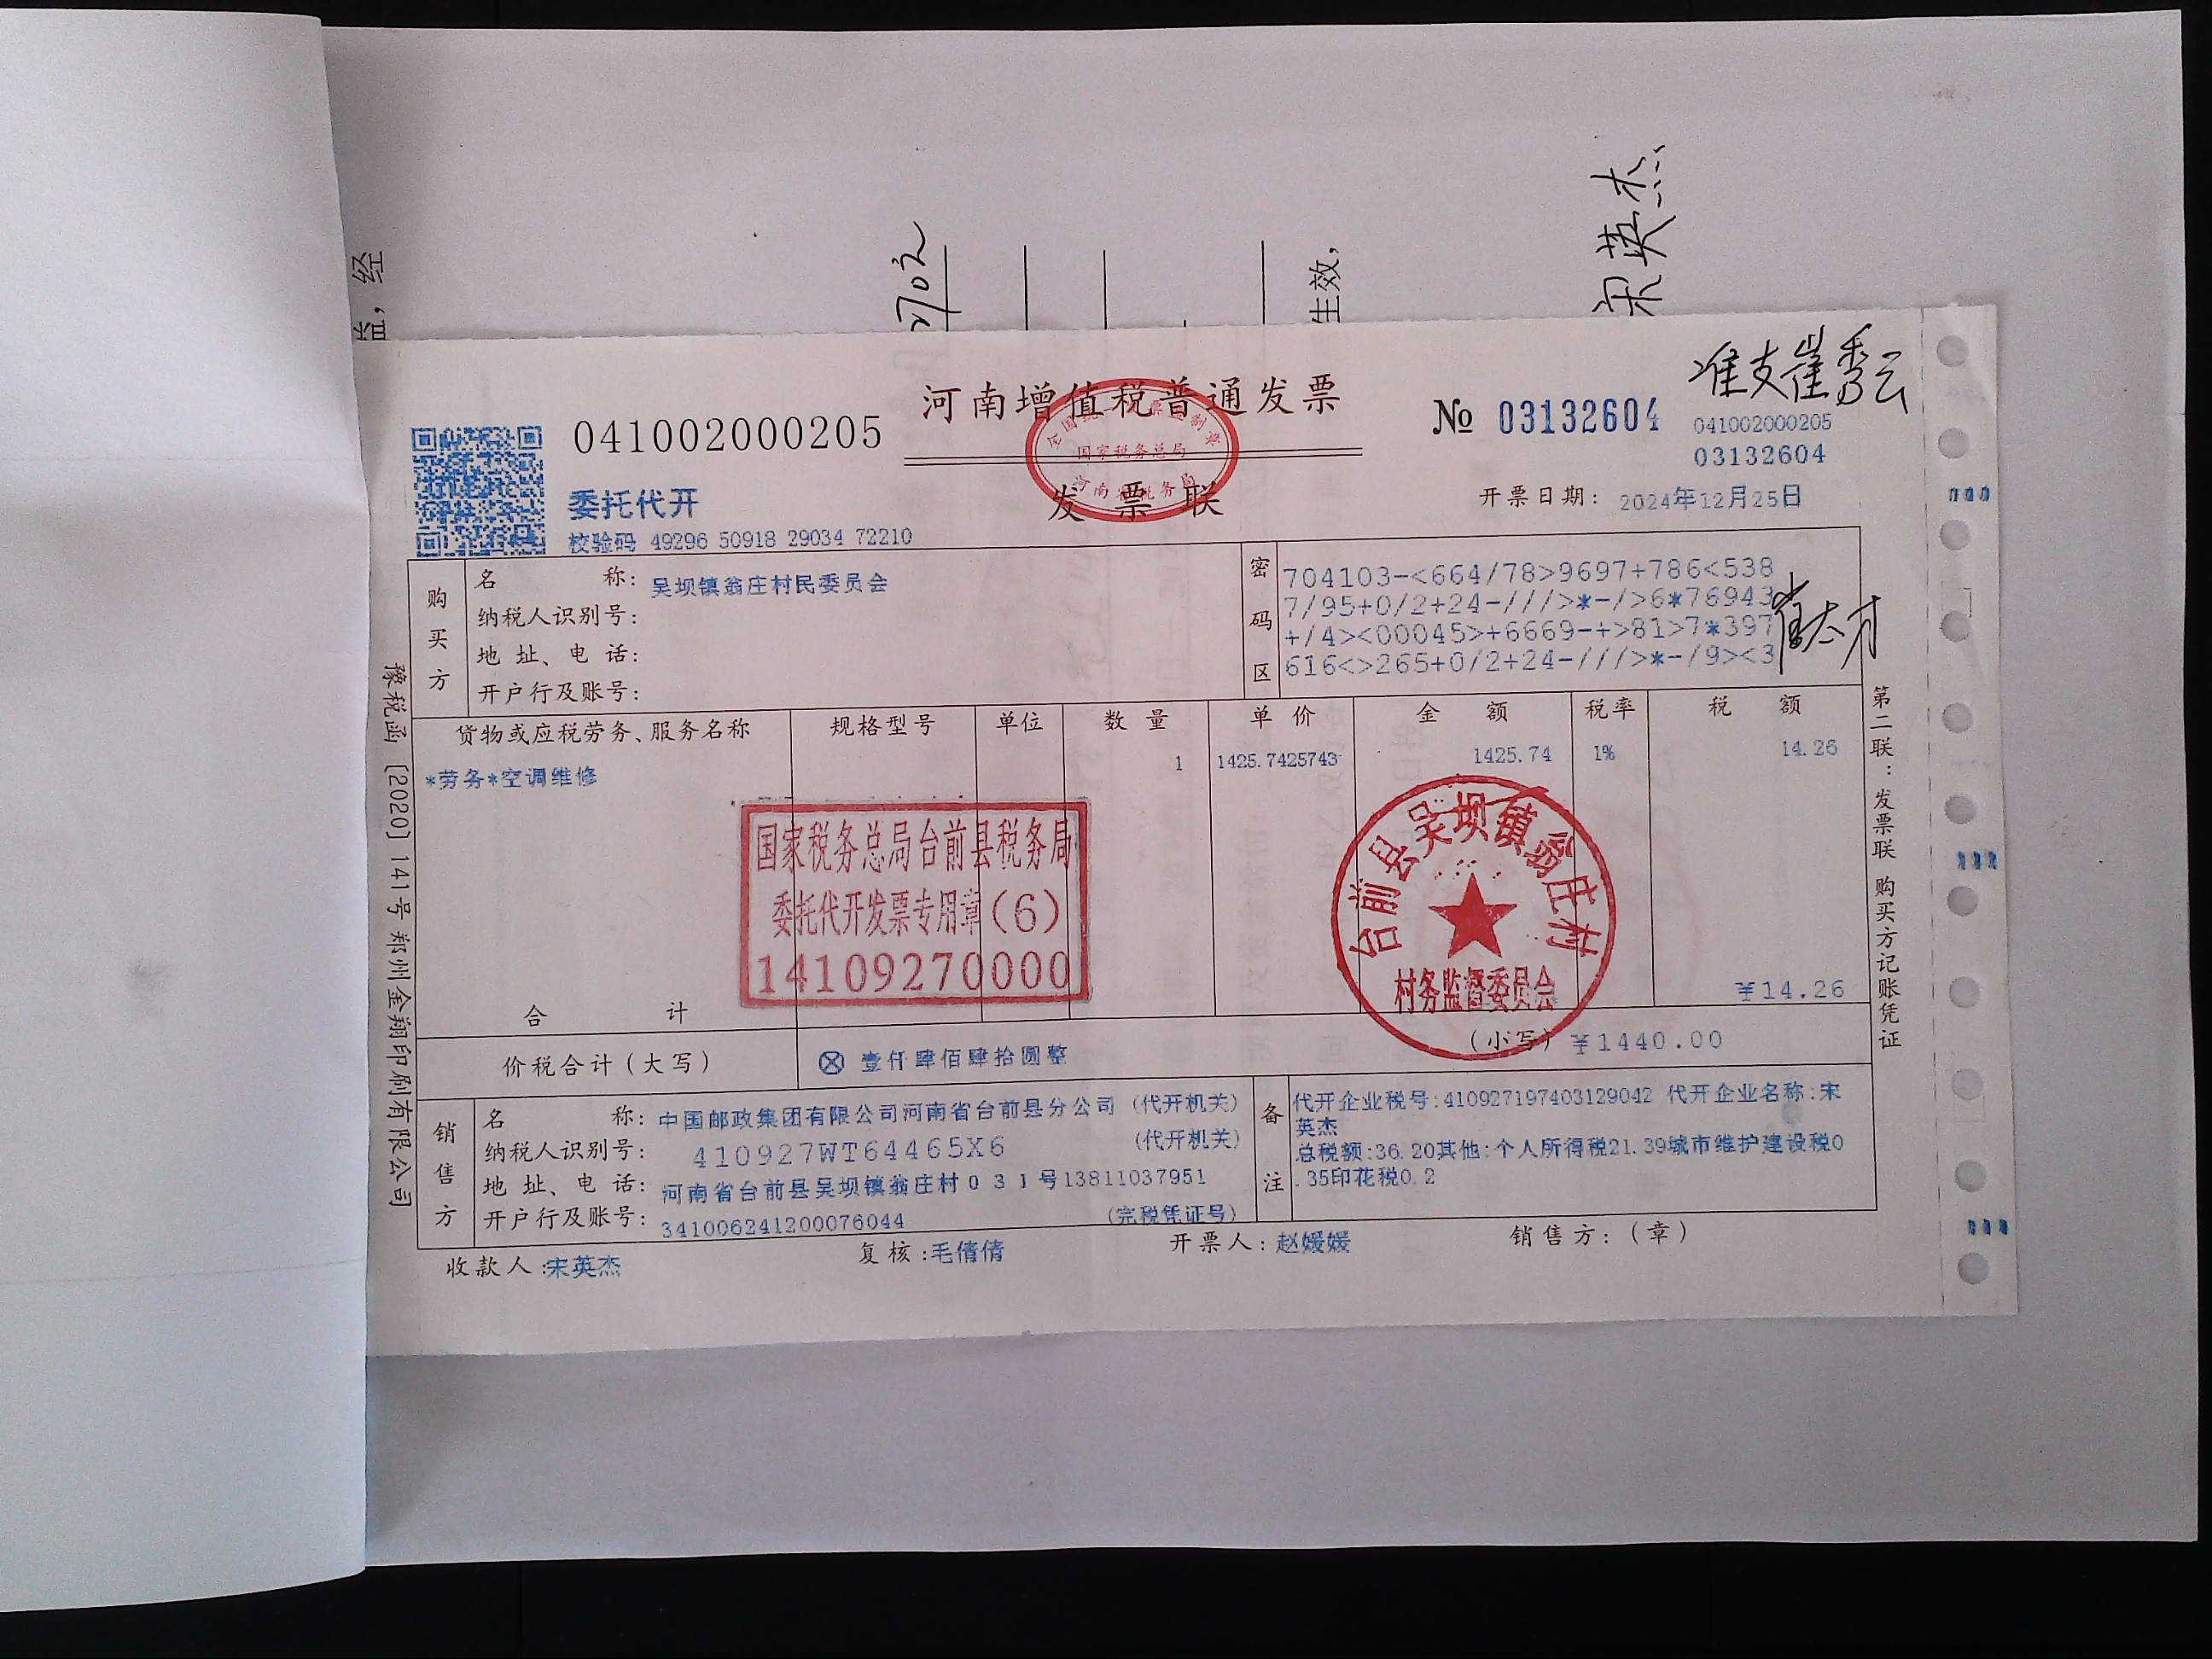 益，经
生效，
宋英杰
准支崔秀云
河南增值税普通发票
041002000205
№ 03132604
041002000205
03132604
委托代开
发票联
国家税务总局
开票日期： 2024年12月25日
校验码 49296 50918 29034 72210
购买方
名称： 吴坝镇翁庄村民委员会
纳税人识别号：
地址、电话：
开户行及账号：
密码区
704103-<664/78>9697+786<538
7/95+0/2+24-///>*-/>6*76943
+/4><00045>+6669-+>81>7*397
616<>265+0/2+24-///>*-/9><3
货物或应税劳务、服务名称 规格型号 单位 数量 单价 金额 税率 税额
*劳务*空调维修 1 1425.7425743 1425.74 1% 14.26
国家税务总局台前县税务局
委托代开发票专用章(6)
14109270000
台前县吴坝镇翁庄村
村务监督委员会
合计 ¥14.26
价税合计（大写） ⊗ 壹仟肆佰肆拾圆整 （小写）¥1440.00
销售方
名称： 中国邮政集团有限公司河南省台前县分公司 (代开机关)
纳税人识别号： 410927WT64465X6 (代开机关)
地址、电话： 河南省台前县吴坝镇翁庄村031号13811037951
开户行及账号： 341006241200076044 (完税凭证号)
备注
代开企业税号:410927197403129042 代开企业名称:宋
英杰
总税额:36.20其他:个人所得税21.39城市维护建设税0
.35印花税0.2
收款人:宋英杰 复核:毛倩倩 开票人:赵媛媛 销售方：（章）
豫税函〔2020〕141号郑州金翔印刷有限公司
第二联：发票联 购买方记账凭证